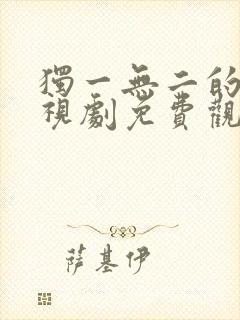 獨一無二的
視劇免費觀
薩基伊